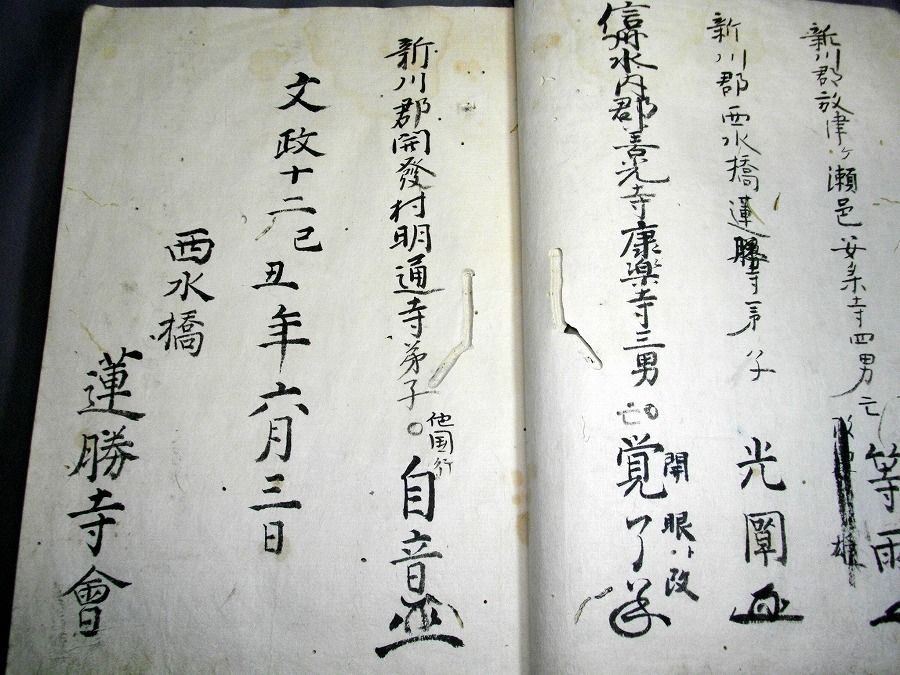 新川郡放津ヶ瀬邑 安条寺四男 亡
等雨
新川郡西水橋蓮勝寺弟子 光闡
信州水内郡善光寺康楽寺三男 亡〇 覚了
開眼ト改
新川郡開發村明通寺弟子 〇 自音
他国行
文政十二己丑年六月三日
西水橋
蓮勝寺會